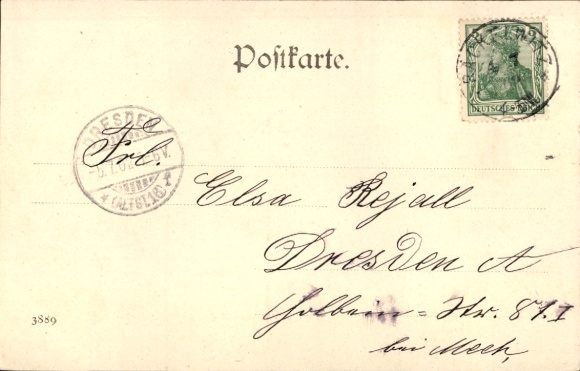 Postkarte.
DEUTSCHES REICH
DRESDEN
5.7.02
(ALTST.)16
Frl.
Elsa Rejall
Dresden A
Holbein=Str. 87.I
bei Meck,
3889